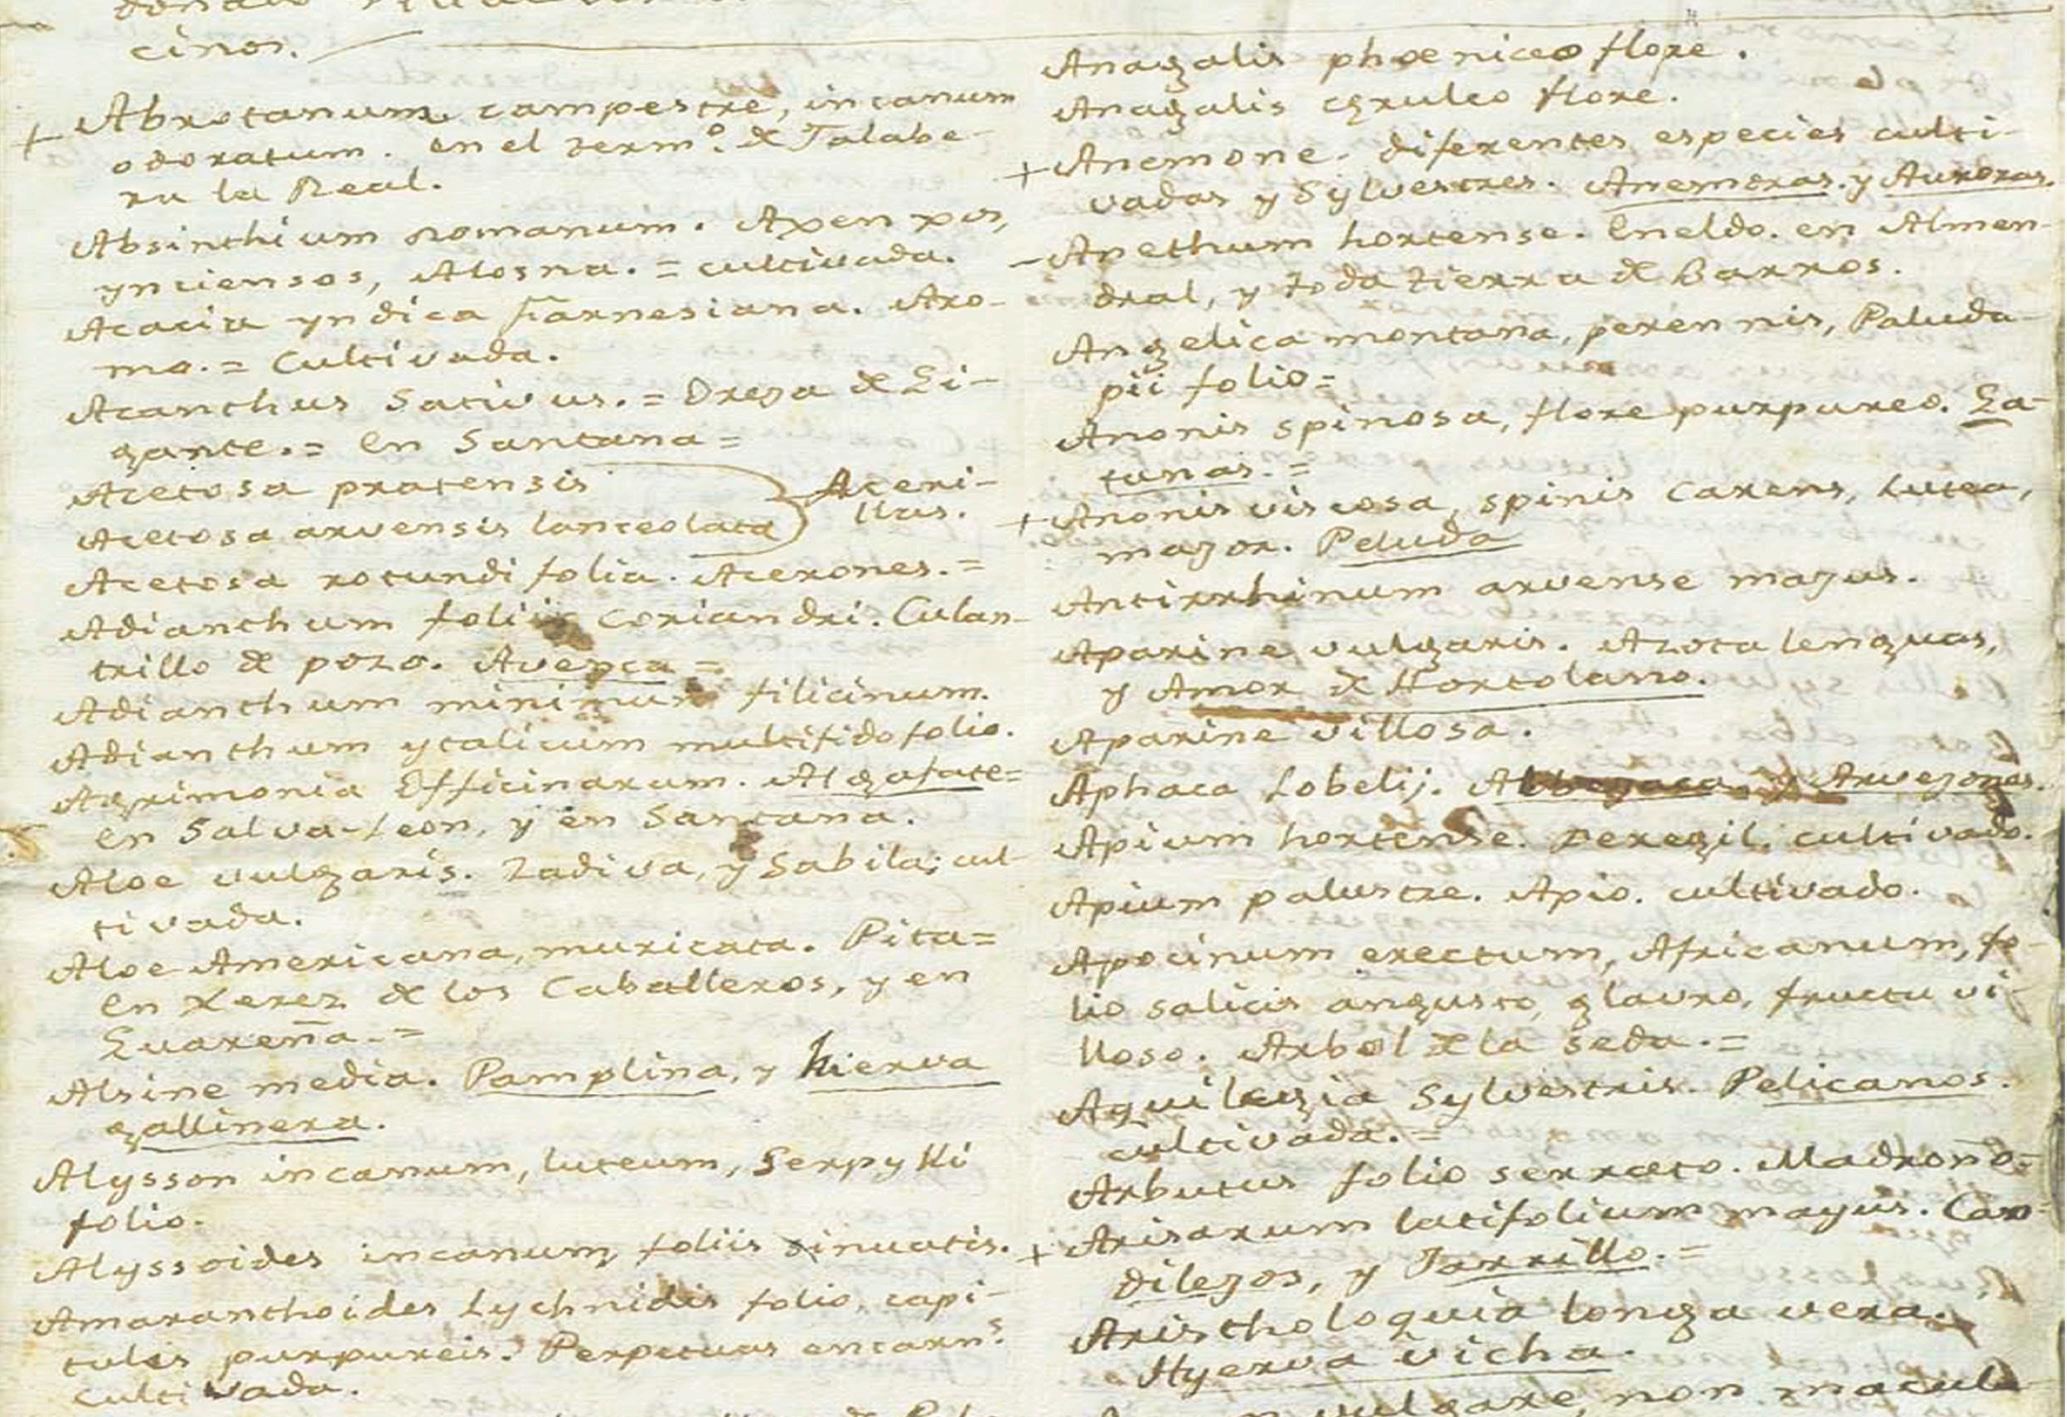 cinos.
+ Abrotanum campestre, incanum
odoratum. en el term.º de Talabe-
ra la Real.
Absinthium romanum. Axenxos,
ynciensos, Alosna. = cultivada.
Acacia yndica Farnesiana. Aro-
mo. = Cultivada.
Acanthus Sativus. = Oreja de Gi-
gante. = en Santana =
Acetosa pratensis
Acetosa arvensis lanceolata
Aceri-
llas.
Acetosa rotundifolia. Acerones. =
Adianthum foliis Coriandri. Culan-
trillo de pozo. Avenca =
Adianthum minimum filicinum.
Adianthum ytalicum multifido folio.
Agrimonia Officinarum. Algafate =
en Salva-Leon, y en Santana.
Aloe vulgaris. Zadiva, y Sabila; cul-
tivada.
Aloe Americana, muricata. Pita =
en Xerez de los Caballeros, y en
Guareña. =
Alsine media. Pamplina, y hierva
gallinera.
Alysson incanum, luteum, Serpylli
folio.
Alyssoides incanum, foliis sinuatis.
Amaranthoides Lychnidis folio, capi-
tulis purpureis. Perpetuas encarn.s
Cultivada.
Anagalis phœniceo flore.
Anagalis cęruleo flore.
+ Anemone. diferentes especies culti-
vadas y Sylvestres. Anemoras. y Auroras.
- Anethum hortense. Eneldo. en Almen-
dral, y toda tierra de Barros.
Angelica montana, perennis, Paluda-
pii folio =
Anonis spinosa, flore purpureo. Ga-
tunas. =
+ Anonis viscosa, spinis carens, lutea,
major. Peluda
Antirrhinum arvense majus.
Aparine vulgaris. Azota lenguas,
y Amor de Hortolano.
Aparine villosa.
Aphaca Lobelij. y Arvejonas.
Apium hortense. peregil. cultivado.
Apium palustre. Apio. cultivado.
Apocinum erectum, Africanum, fo-
lio salicis angusto, glauro, fructu vi-
lloso. Arbol de la seda. =
Aquilegia Sylvestris. Pelicanos.
cultivada. =
Arbutus folio serrato. Madroño =
+ Arisarum latifolium majus. Can-
dilejos, y Jarrillo. =
Aristholoquia longa vera.
Hyerva vicha.
vulgare, non macula